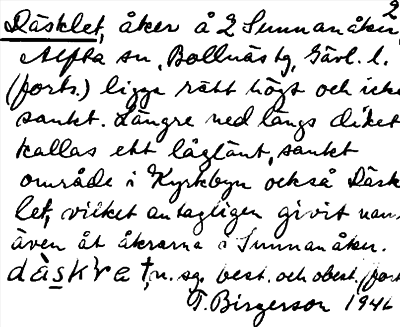 2
Däsklet, åker å 2 Sunnanåker,
Alfta sn, Bollnäs tg, Gävl. l.
(forts.) ligga rätt högt och icke
sankt. Längre ned längs diket
kallas ett låglänt, sankt
område i Kyrkbyn också Däsk-
let, vilket antagligen givit namn
även åt åkrarna i Sunnanåker.
dàskrat, n. sg. best. och obest. (forts
T. Birgerson 1946